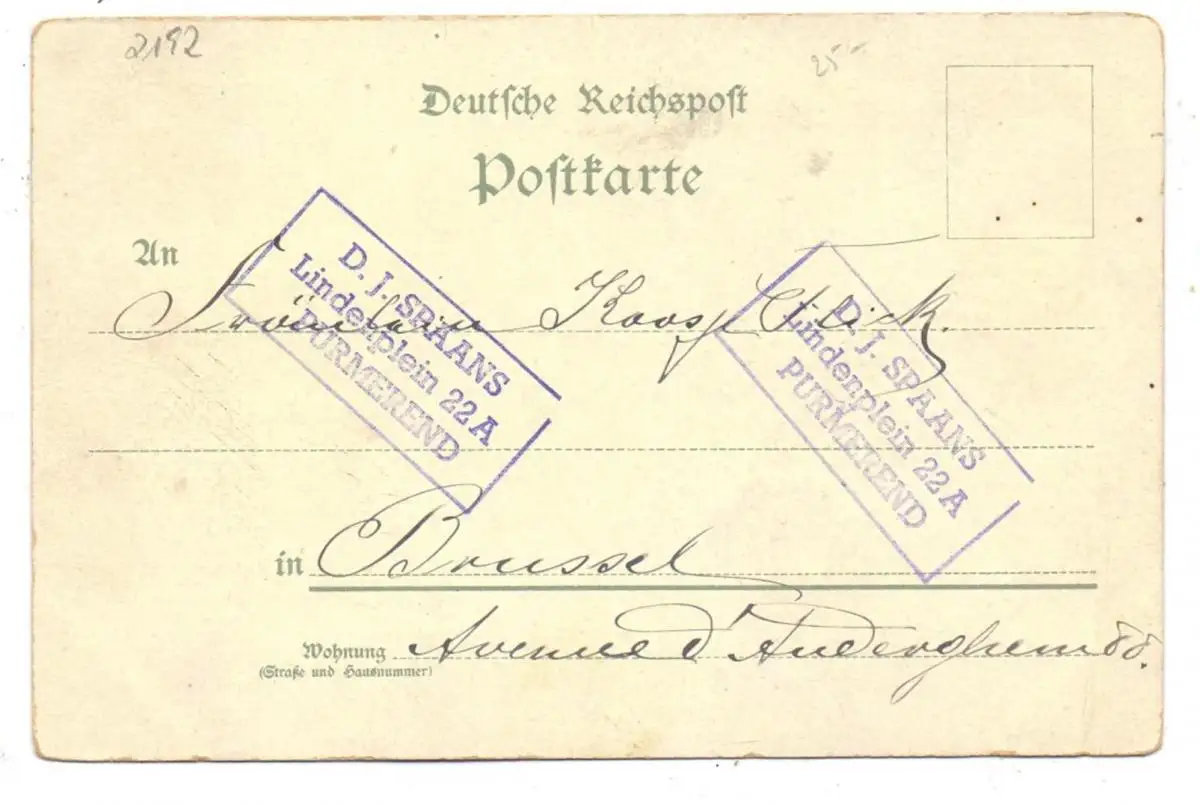 2192
25--
Deutsche Reichspost
Postkarte
An
Fräulein Koosje Flick.
D. J. SPAANS
Lindenplein 22 A
PURMEREND
D. J. SPAANS
Lindenplein 22 A
PURMEREND
in Brussel
Wohnung Avenue d'Auderghem 88.
(Straße und Hausnummer)